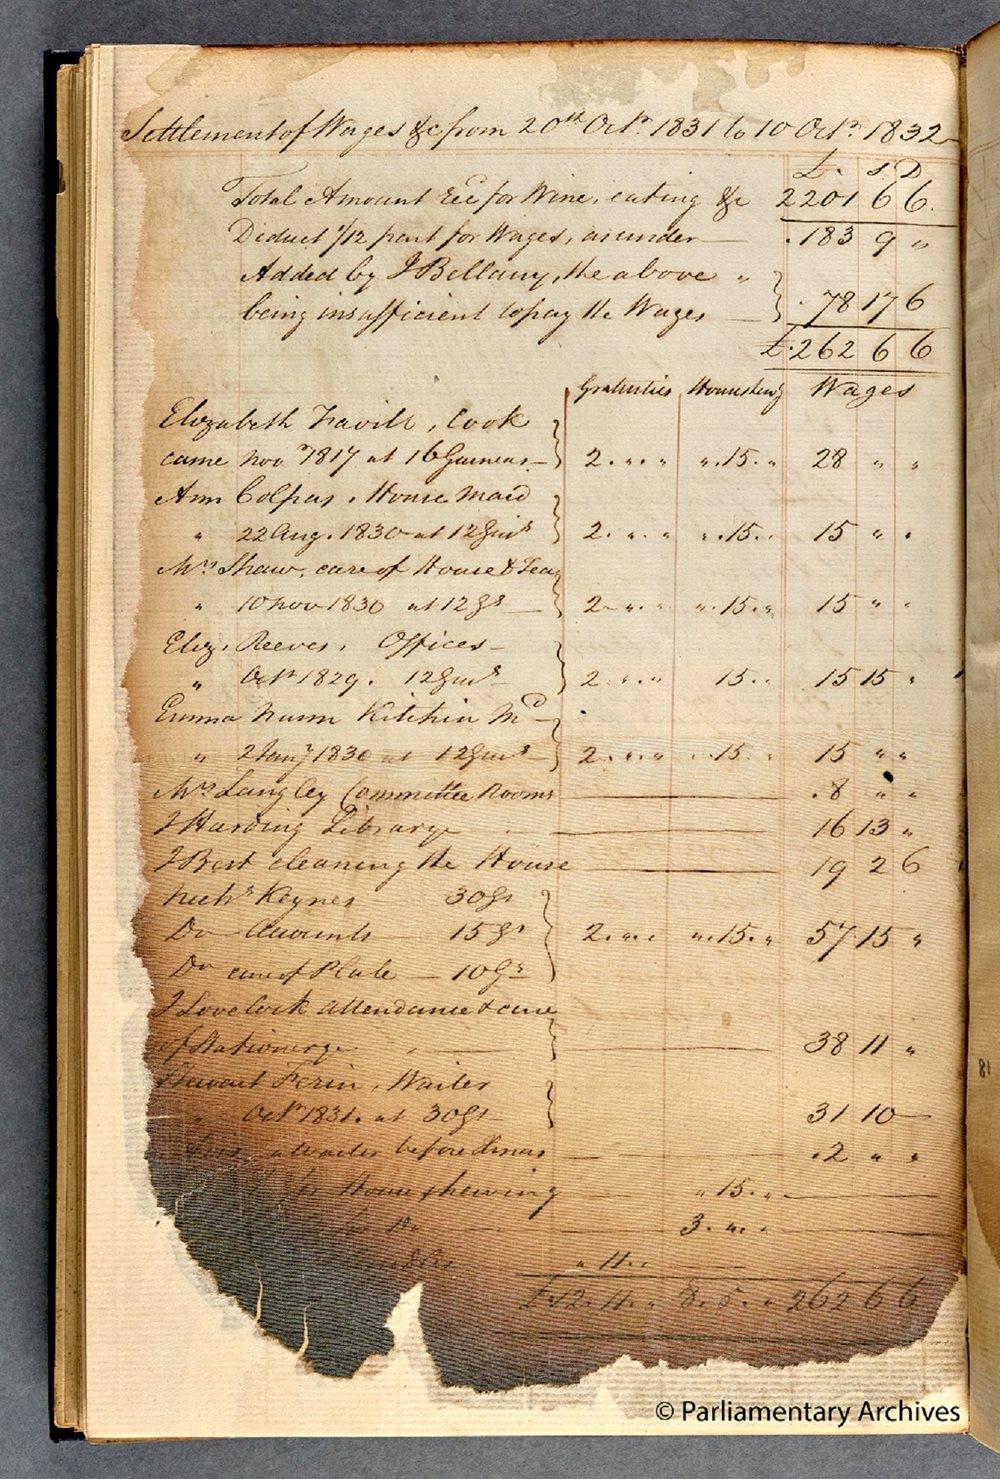 Settlement of Wages &c from 20th Octr. 1831 to 10 Octr. 1832
£. s D
Total Amount Recd for Wine, eating &c 2201 6 6.
Deduct 1/12 part for Wages, as under .183 9 "
Added by J Bellamy, the above "
being insufficient to pay the Wages . 78 17 6
£.262 6 6
Gratuities Housekeepg Wages
Elizabeth Favill, Cook
came Nov 1817 at 16 Guineas 2. " . " . " " .15. " 28 " "
Ann Colpas, House Maid
" 22 Aug. 1830 at 12 Guins 2. " . " " .15. " 15 " "
Mrs Shaw, care of House & Tea
" 10 Nov 1830 at 12 Gs 2 " . " " .15. " 15 " "
Eliz. Reeves, Offices
" Octr 1829. 12 Guns 2 " . " 15. " 15 15 "
Emma Nunn Kitchin Md
" 2 Jany 1830 at 12 Guns 2. " . " .15. " 15 " "
Mrs Langley Committee Rooms .8 " "
J Harding Library 16 13 "
J Best cleaning the House 19 2 6
Nichs Keynes 30 Gs
Do Accounts 15 Gs 2. " . " " .15. " 57 15 "
Do care of Plate 10 Gs
J Lovelock attendance & care
of Stationery 38 11 "
Stewart Ferin, Waiter
" Octr 1831. at 30 Gs 31 10
a Waiter before Xmas .2 " "
" .15. "
3. " . "
" 11. "
£12. 11. " 8. 5. " 262 6 6
18
© Parliamentary Archives